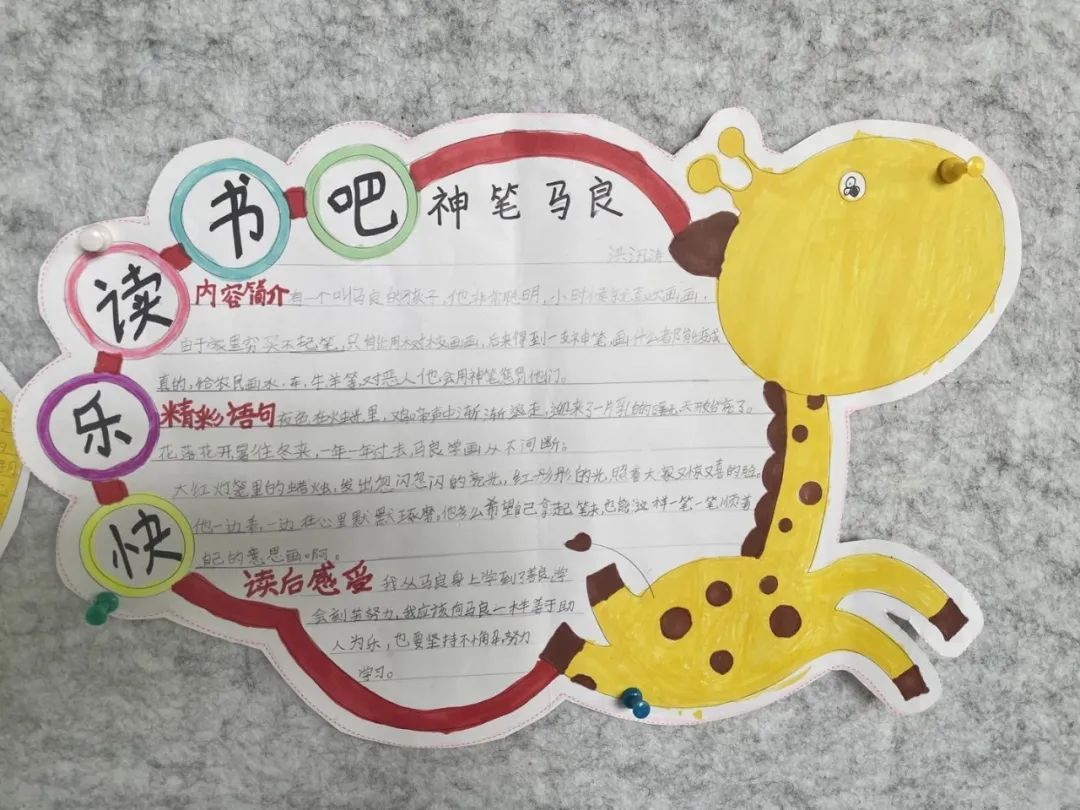 快乐读书吧
神笔马良
洪汛涛
内容简介 有一个叫马良的孩子，他非常聪明，小时候就喜欢画画，
由于家里穷买不起笔，只能用木枝画画，后来得到一支神笔，画什么都能变成
真的，给农民画水、车、牛羊等，对恶人他会用神笔惩罚他们。
精彩语句 夜色在火烛里，鸡啼声中渐渐退走，迎来了一片乳白的曙光，天开始亮了。
花落花开暑往冬来，一年一年过去，马良学画从不间断。
大红灯笼里的蜡烛，发出忽闪忽闪的亮光，红彤彤的光，照着大家又惊又喜的脸。
他一边看，一边在心里默默琢磨。他多么希望自己拿起笔来，也能这样一笔一笔顺着
自己的意思画啊。
读后感受 我从马良身上学到了善良，学
会刻苦努力，我应该向马良一样善于助
人为乐，也要坚持不懈努力
学习。